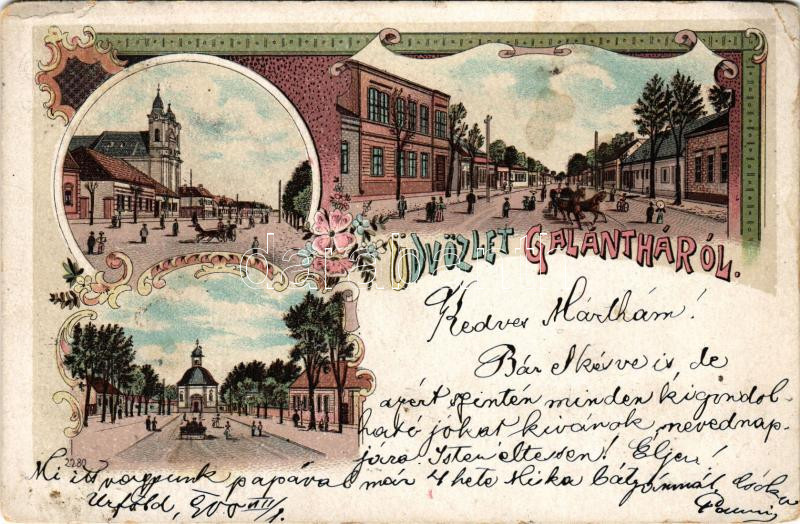 ÜDVÖZLET GALANTHÁRÓL.
Kedves Márthám!
Bár elkésve is, de
azért szintén minden kigondol-
ható jókat kívánok, nevednap-
jára. Isten éltessen! Éljen!
Mi itt vagyunk papával már 4 hete Miska bátyánmál, Csóka
900 VII/
2280